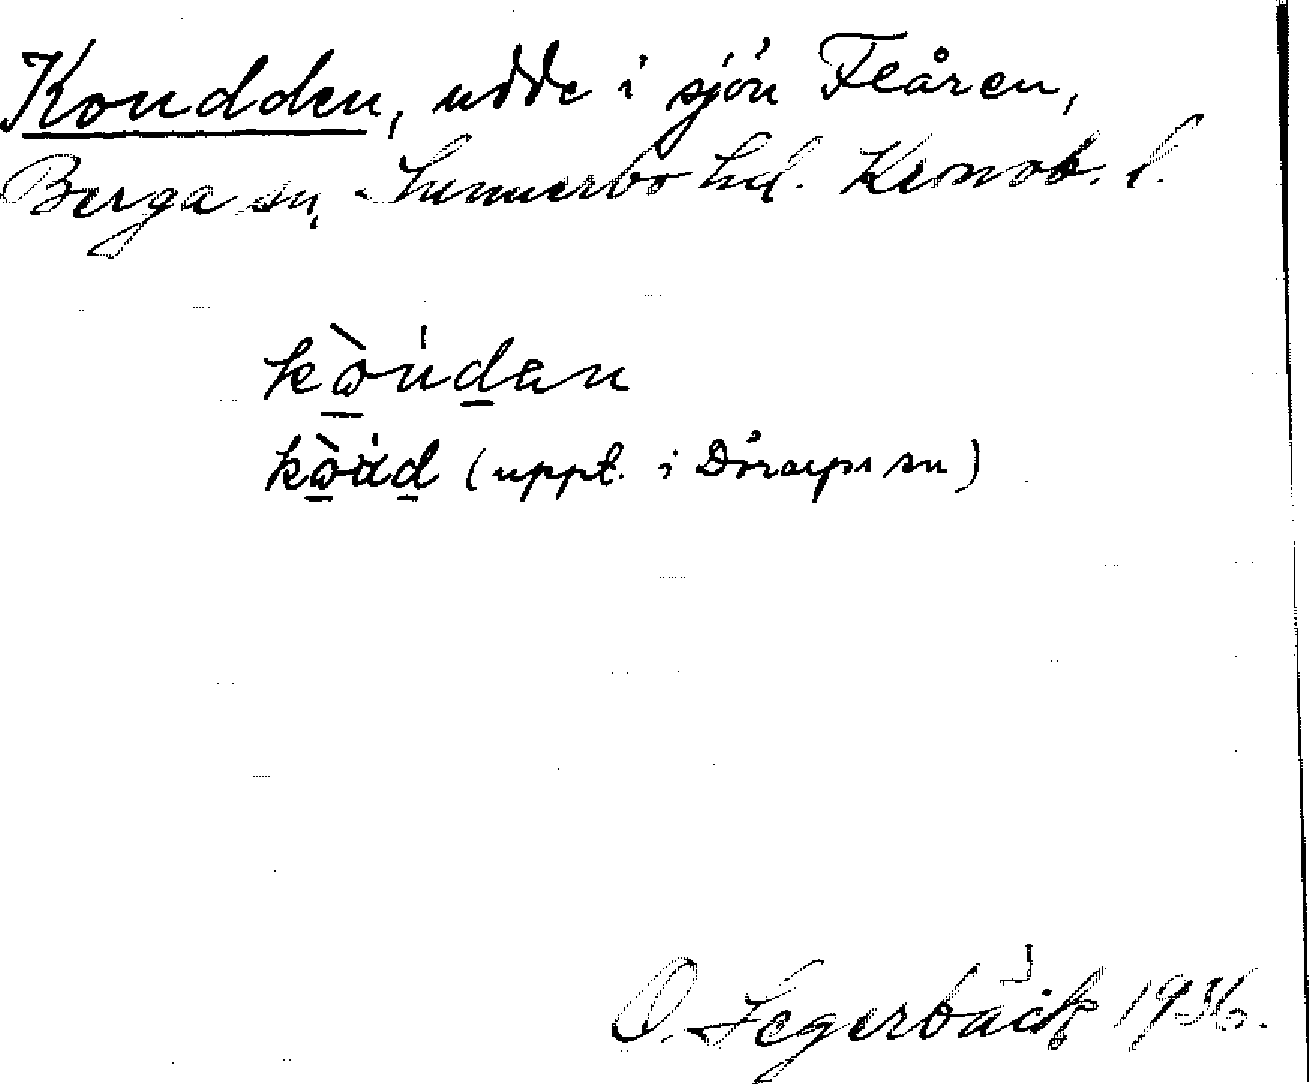 Koudden, udde i sjön Flåren,
Berga sn, Sunnerbo hd. Kronob. l.
kòu̇dan
kòu̇d (uppt. i Dörarps sn)
O. Segerbäck 1936.